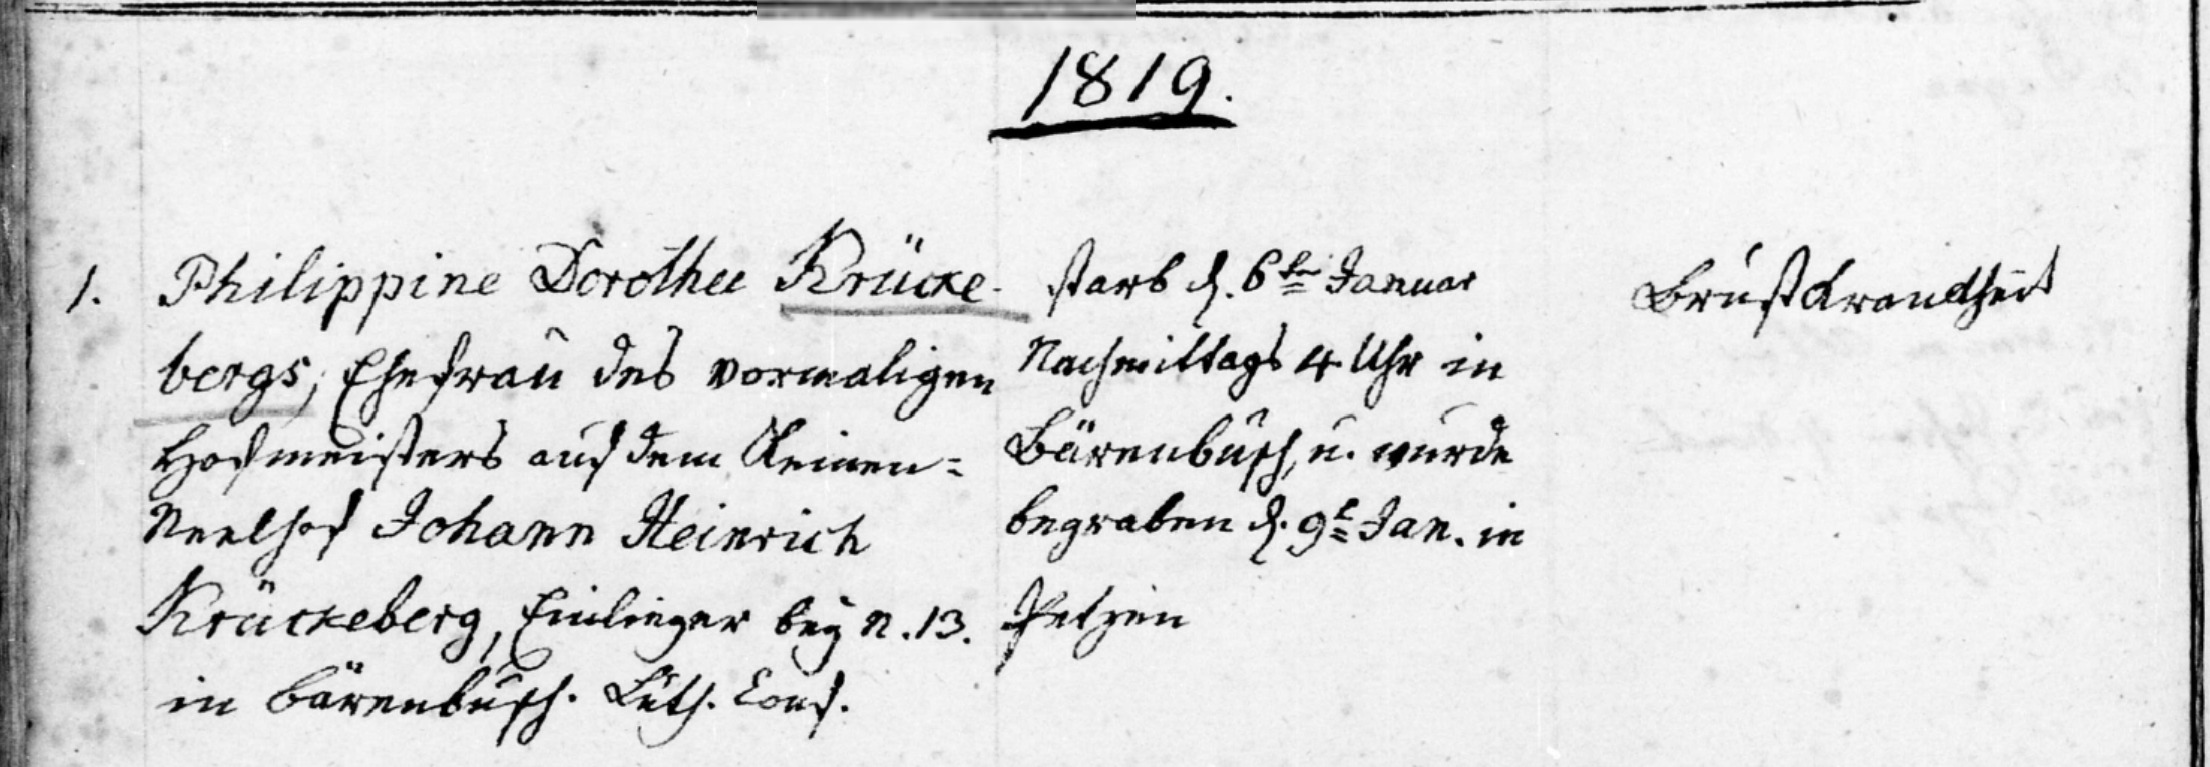 1819.
1. Philippine Dorothee Krücke-
bergs, Ehefrau des vormaligen
Hofmeisters auf dem
Johann Heinrich
Krückeberg, Einlieger bey N. 13.
in Bärenbusch. Luth. Conf.
starb d. 6ten Januar
Nachmittags 4 Uhr in
Bärenbusch, u. wurde
begraben d. 9t Jan. in
Petzen
Brustkrankheit